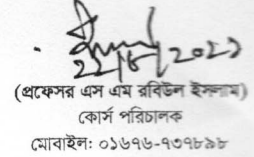 22/8/2022
(প্রফেসর এস এম রবিউল ইসলাম)
কোর্স পরিচালক
মোবাইল: ০১৬৭৬-৭৩৭৮৯৮